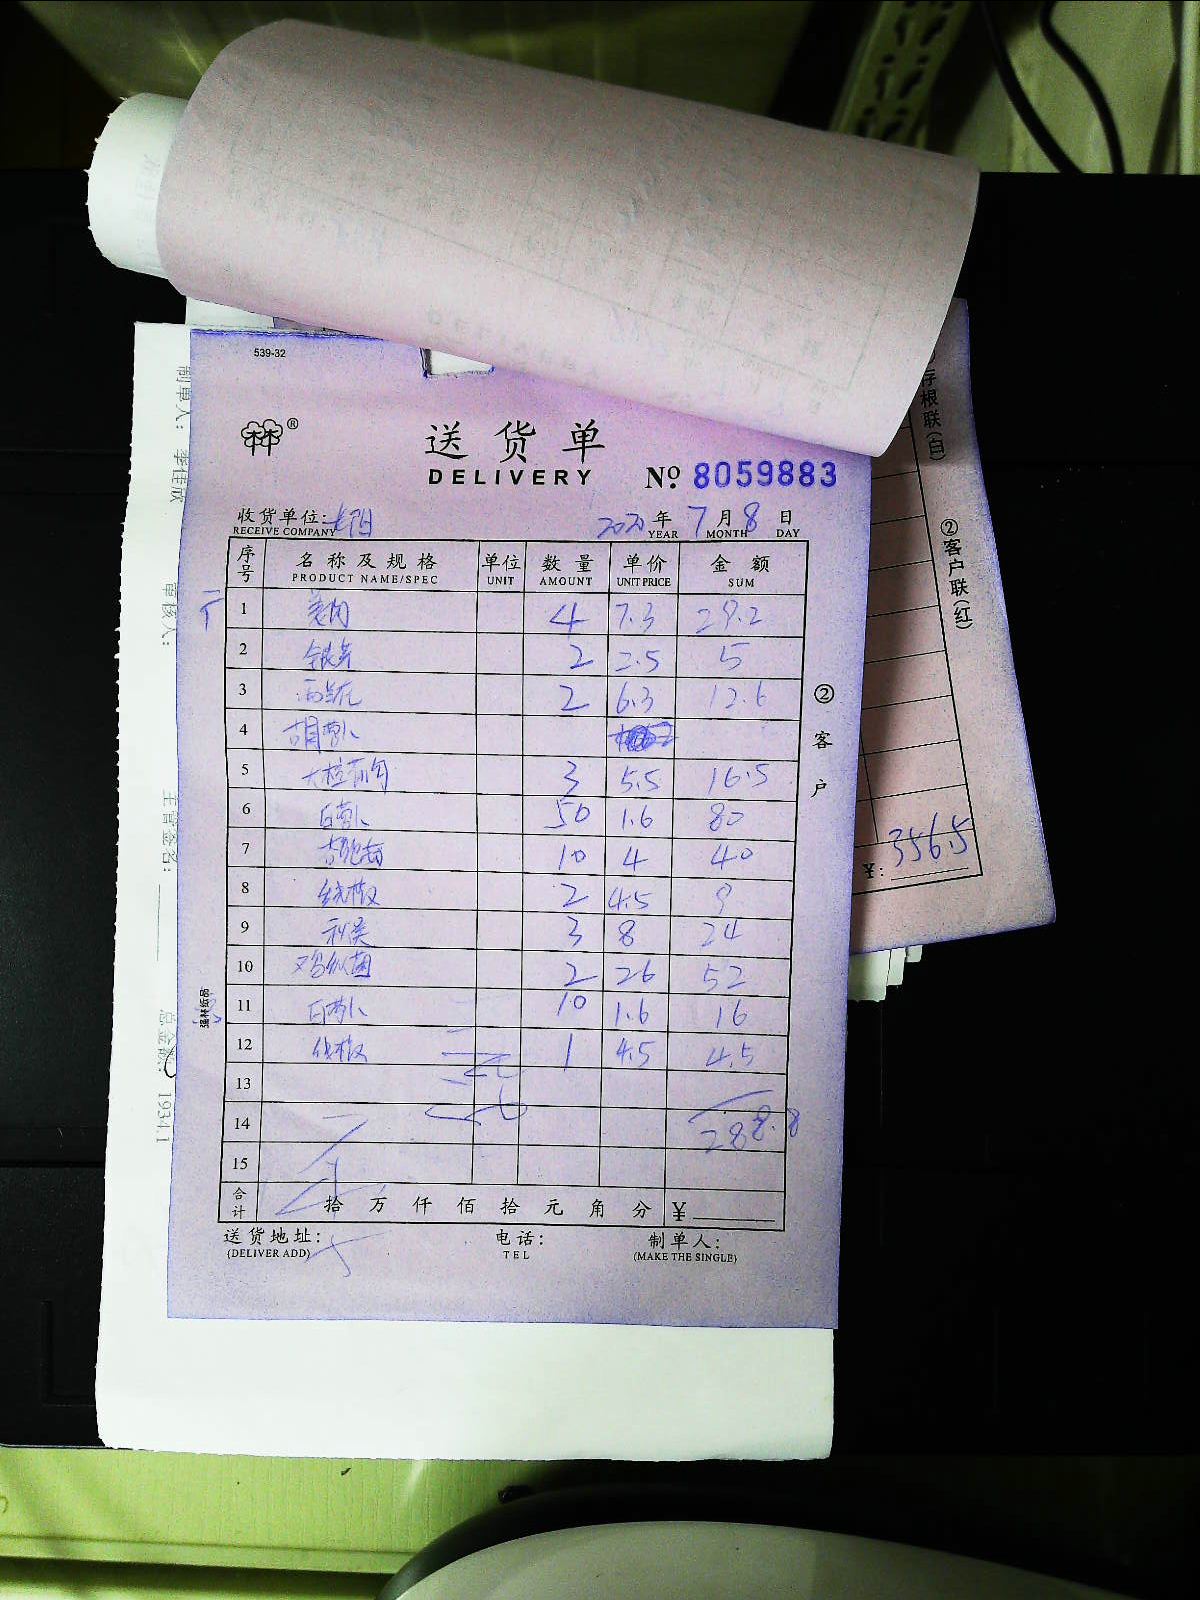 539-32
林®
送货单
DELIVERY
№ 8059883
收货单位:
RECEIVE COMPANY
2020 年 7 月 8 日
YEAR MONTH DAY
序号 名称及规格 单位 数量 单价 金额
PRODUCT NAME/SPEC UNIT AMOUNT UNIT PRICE SUM
1 姜肉 4 7.3 29.2
2 银芽 2 2.5 5
3 西芹 2 6.3 12.6
4 胡萝卜
5 3 5.5 16.5
6 白萝卜 50 1.6 80
7 10 4 40
8 线椒 2 4.5 9
9 3 8 24
10 鸡纵菌 2 26 52
11 白萝卜 10 1.6 16
12 线椒 1 4.5 4.5
13
14 288.8
15
合计 拾 万 仟 佰 拾 元 角 分 ¥
送货地址: 电话: 制单人:
(DELIVER ADD) TEL (MAKE THE SINGLE)
②客户
强林纸品
制单人: 李佳欣
审核人:
主管签名:
总金额: 1934.1
存根联(白)
②客户联(红)
¥: 356.5